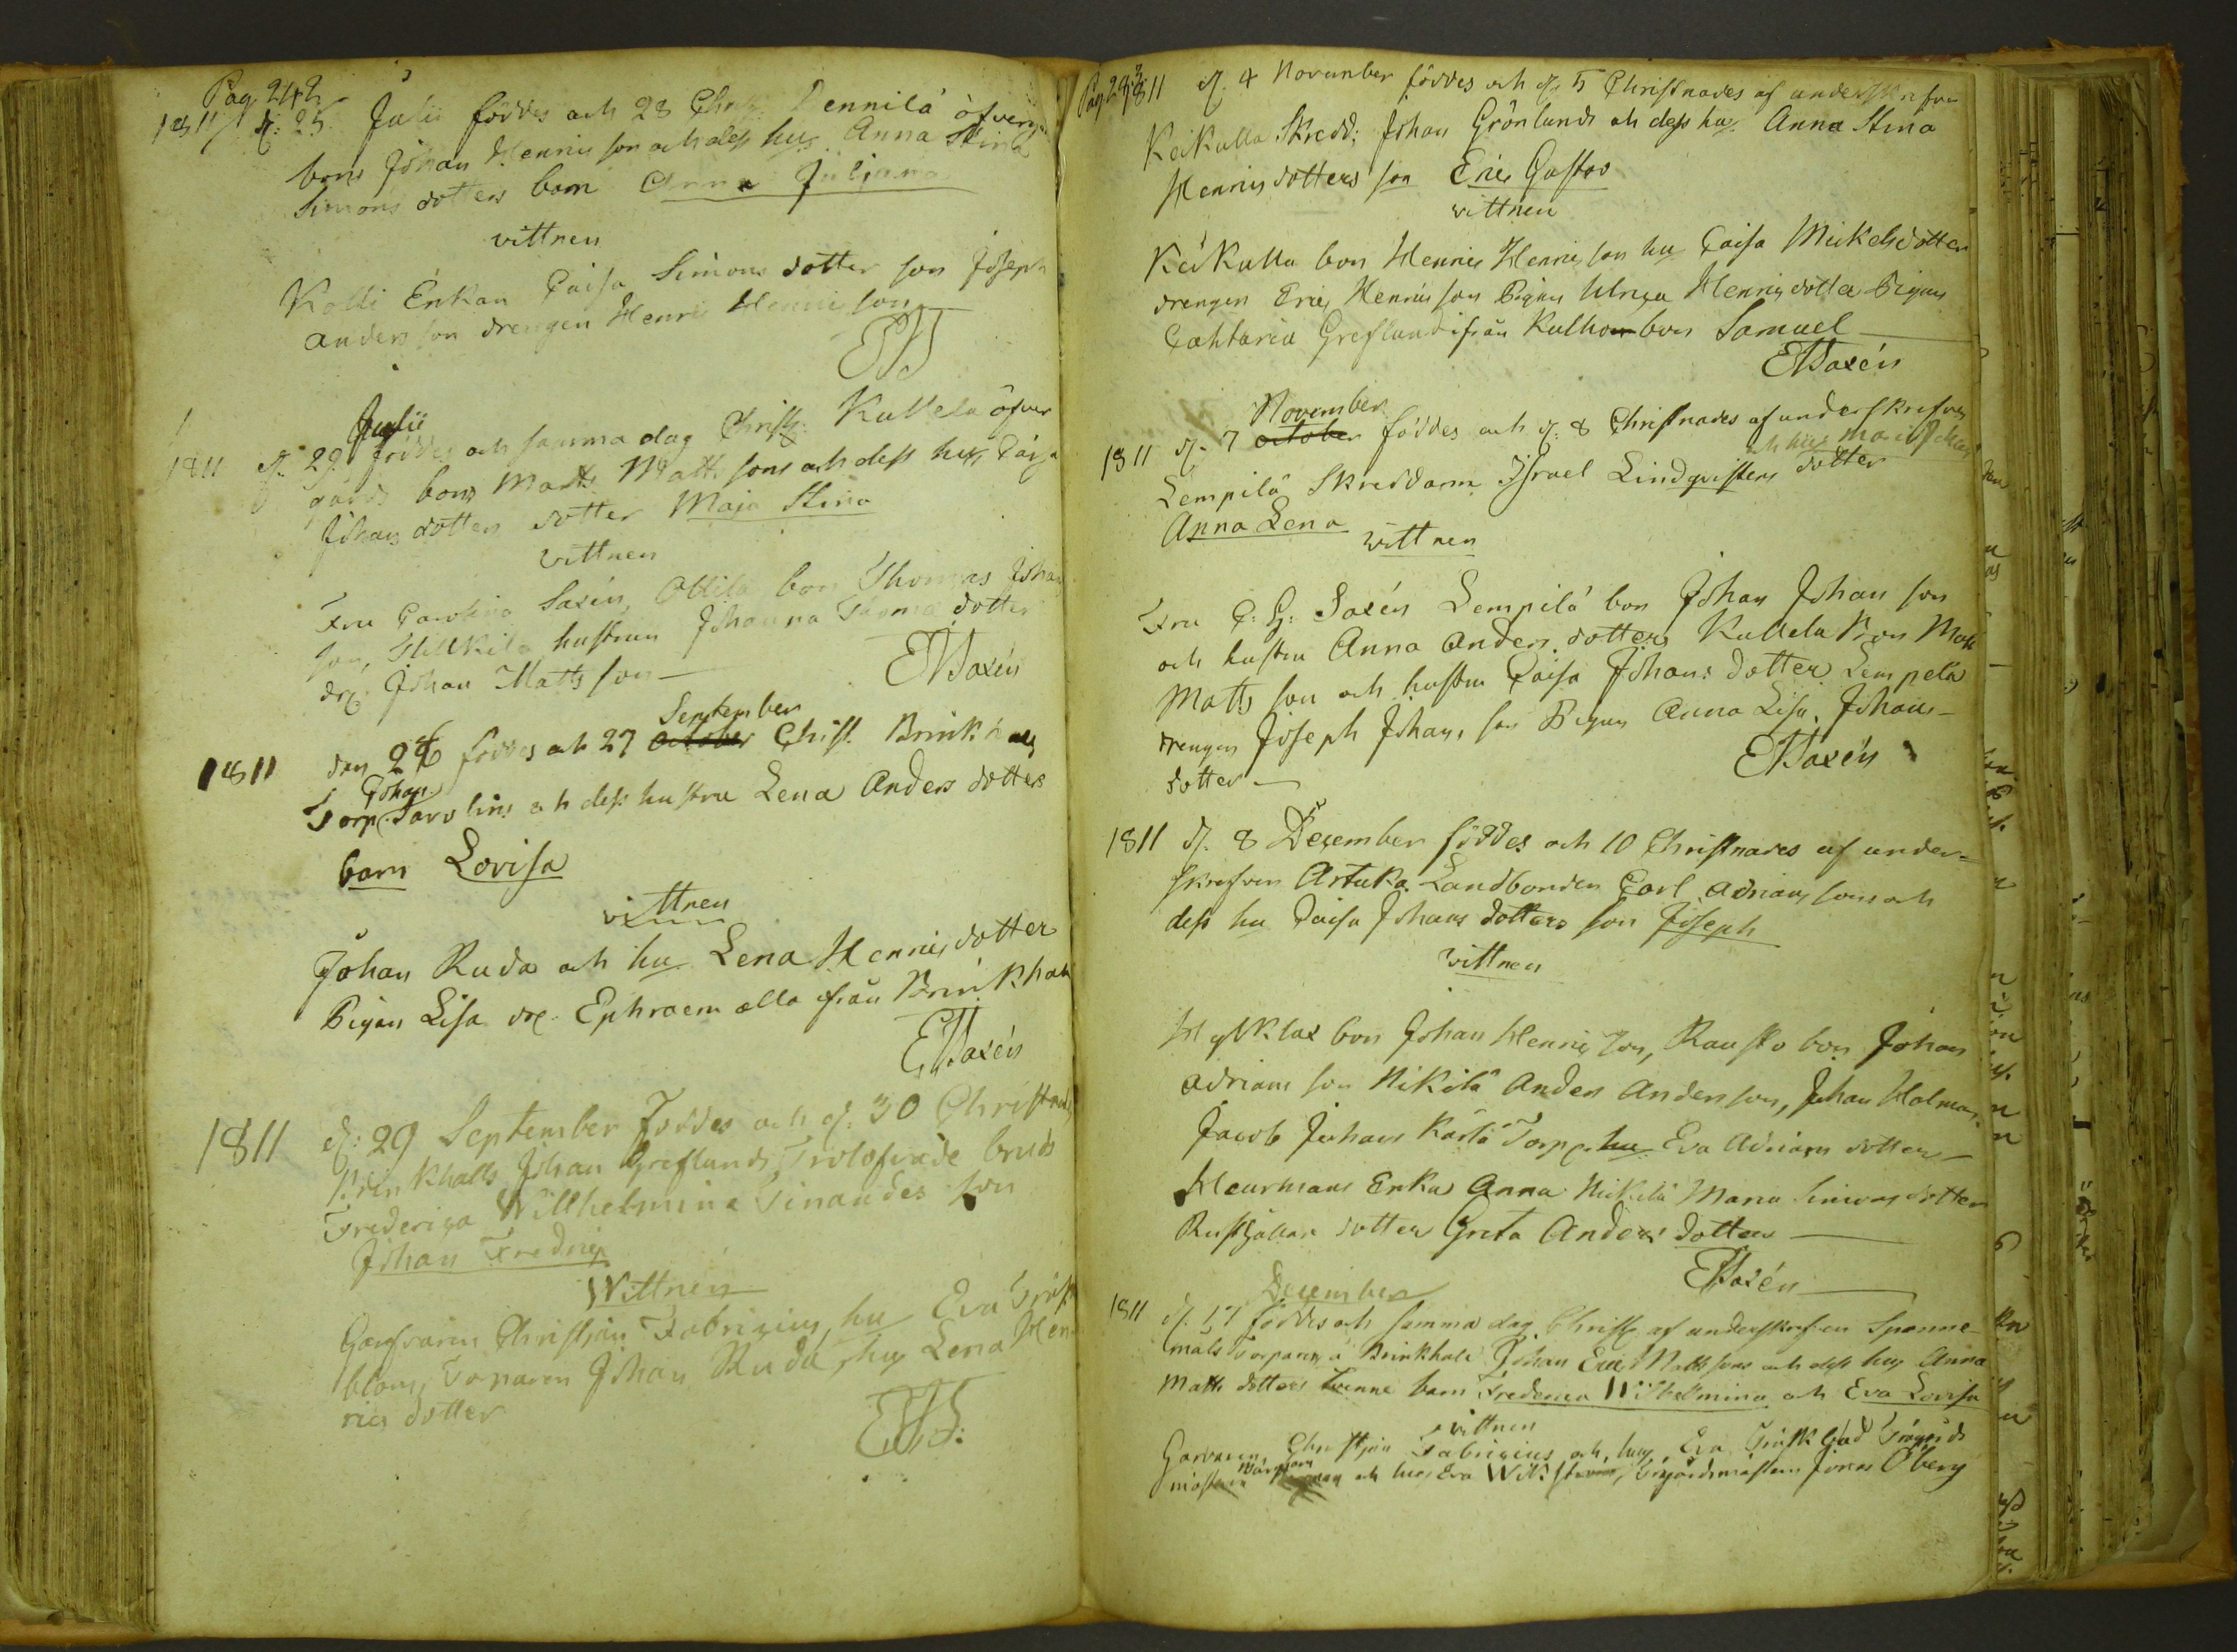 Pag 242
1811 d: 25 Julii föddes och 28 Christ: Pennilä öfver
bons Johan Henrics son och dess hu: Anna Stina
Simons dotters barn Anna Juliana
vittnen
Kolli Enkan Caisa Simons dotter son Joseph
anders son drengen Henric Henrics son
Julii
1811 d. 29 föddes och samma dag Christ: Kullela öfver
gårds bons Matts Matts sons och dess hu: Caisa
Johans dotters dotter Maja Stina
vittnen
Fru Carolina Saxén, Ollila bon Thomas Johan
son, hustrun Johanna Thoma dotter
dr: Johan Matts son
E Saxén
September
1811 den 26 föddes och 27 october Christ. Brinkhals
Johan
Torp. Savolins och dess hustru Lena Anders dotters
barn Lovisa
vittnen
Johan Ruda och hu Lena Henrics dotter
Pigan Lisa dr: Ephraem alla ifrån Brinkhall
E Saxén
1811 d: 29 September Föddes och d. 30 Christnades
Brinkhalls Johan Greflunds Trolofvade brud
Frederica Willhelmina Tinandes son
Johan Fredric
Wittnen
Garfvaren Christjan Fabrizius, hu Eva Frisk
blom, Torparen Johan Ruda, hu Lena Hen
rics dotter
Pag 243
1811 d. 4 November föddes och d. 5 Christnades af underskrefven
Keikulla Skredd: Johan Grönlunds och dess hu: Anna Stina
Henrics dotters son Eric Gustav
vittnen
Keikulla bon Henric Henrics son hu Caisa Mickelsdotter
drengen Eric Henrics son Pigan Ulrica Henrics dotter Pigan
Cahtarina Greflund ifrån Kulho bon Samuel
E Saxén
November
1811 d. 7 october föddes och d. 8 Christnades af underskrefven
och hu: Maria
Lempilä Skreddaren Israel Lindqvisters dotter
Anna Lena
vittnen
Fru C: G: Saxén Lempilä bon Johan Johan son
och hustru Anna Anders dotters Kullela bon Matts
Matts son och hustru Caisa Johans dotter Lempelä
drengen Joseph Johans son Pigan Anna Lisa Johans-
dotter
E Saxén
1811 d. 8 December föddes och 10 Christnades af under=
skrefven Artuka Landbonden Carl Adrians sons och
dess hu Caisa Johans dotters son Joseph
vittnen
Hylklax bon Johan Henrics son, Rausko bon Johan
Adrians son Nikilä Anders Anderson, Johan Holman
Jacob Johans Kärlä Torp. hu Eva Adrians dotter
Heurmans Enka Anna Nickilä Maria Simons dotter
Rusthållare dotter Greta Anders dotter
E Saxén
December
1811 d. 17 föddes och samma dag Christ: af underskrefven Spanne-
måls Torparen å Brinkhall Johan Eric Matts sons och dess hu: Anna
Matts dotters tvenne barn Frederica Wilhelmina och Eva Lovisa
vittnen
Garvaren Christjan Fabrizius och hu: Eva Träg&#229;rds
mästaren och hu: Eva Wikström, Trgårdsmästaren Jonas Öberg